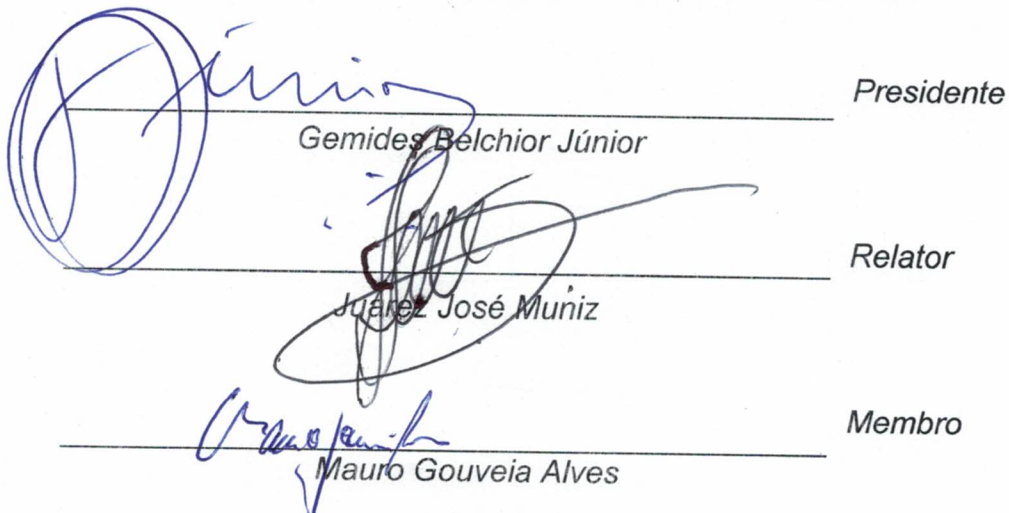 Júnior Presidente
Gemides Belchior Júnior
Relator
Juarez José Muniz
Membro
Mauro Gouveia Alves